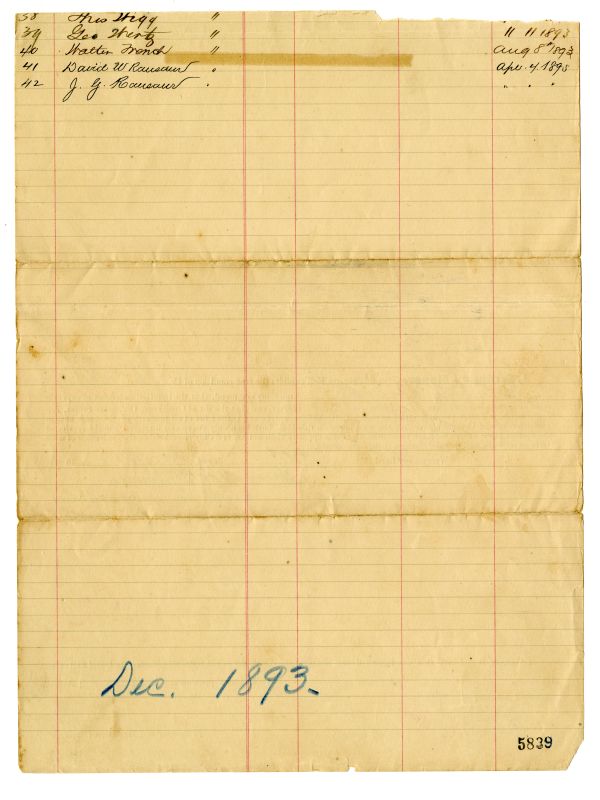 38 Wegg "
39 Geo Wertz " " " 1893
40 Walter French " Aug 8th 1893
41 David W Ransaur " Apr. 4. 1893
42 J. G. Ransaur " " " "
Dec. 1893.
5839